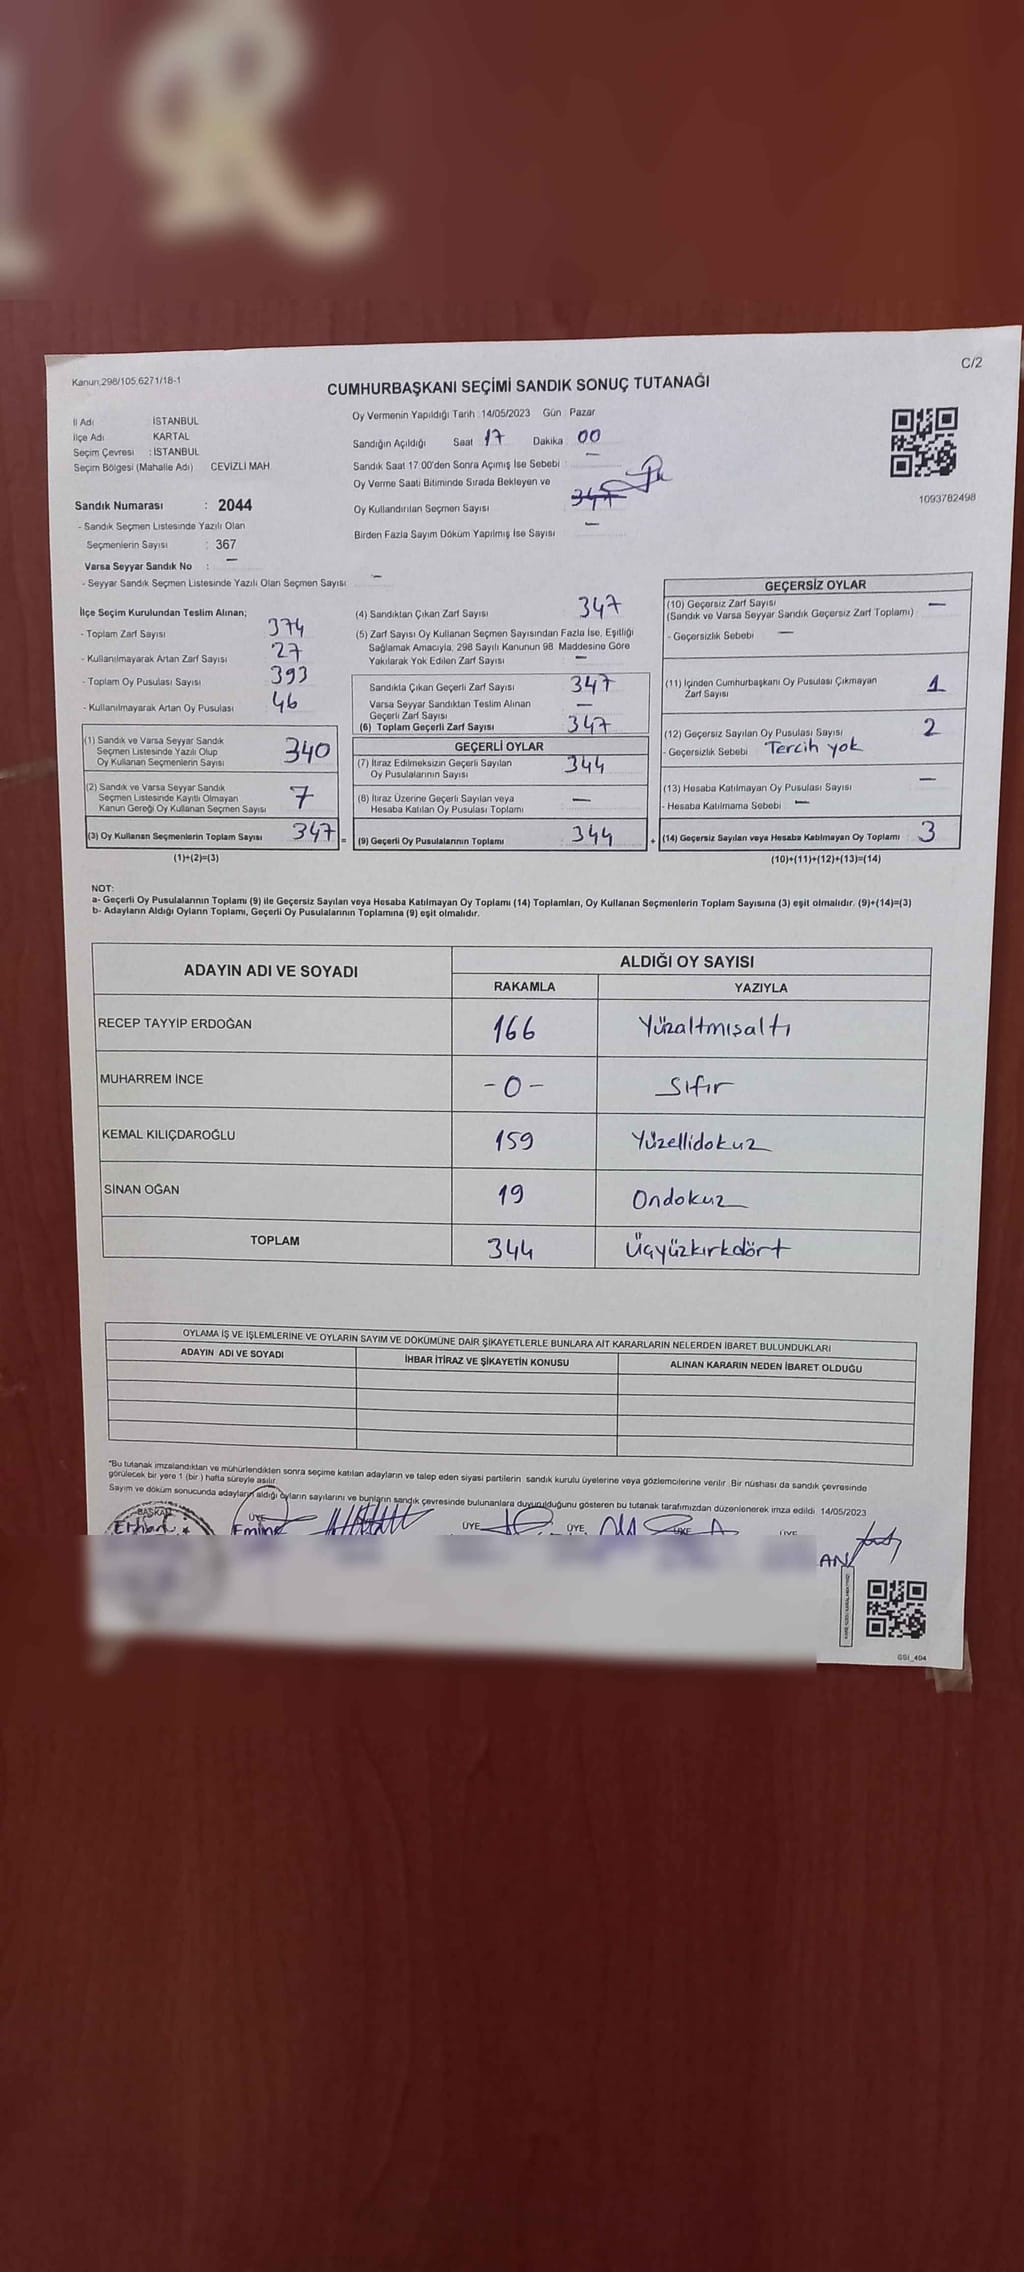 Kanun;298/105,6271/18-1
C/2
CUMHURBAŞKANI SEÇİMİ SANDIK SONUÇ TUTANAĞI
İl Adı İSTANBUL
İlçe Adı KARTAL
Seçim Çevresi : İSTANBUL
Seçim Bölgesi (Mahalle Adı) CEVİZLİ MAH
Sandık Numarası : 2044
- Sandık Seçmen Listesinde Yazılı Olan
Seçmenlerin Sayısı : 367
Varsa Seyyar Sandık No : —
- Seyyar Sandık Seçmen Listesinde Yazılı Olan Seçmen Sayısı —
Oy Vermenin Yapıldığı Tarih : 14/05/2023 Gün : Pazar
Sandığın Açıldığı Saat 17 Dakika 00
Sandık Saat 17:00'den Sonra Açımış İse Sebebi : —
Oy Verme Saati Bitiminde Sırada Bekleyen ve
Oy Kullandırılan Seçmen Sayısı 347
Birden Fazla Sayım Döküm Yapılmış İse Sayısı —
1093782498
İlçe Seçim Kurulundan Teslim Alınan;
- Toplam Zarf Sayısı 374
- Kullanılmayarak Artan Zarf Sayısı 27
- Toplam Oy Pusulası Sayısı 393
- Kullanılmayarak Artan Oy Pusulası 46
(1) Sandık ve Varsa Seyyar Sandık
Seçmen Listesinde Yazılı Olup
Oy Kullanan Seçmenlerin Sayısı 340
(2) Sandık ve Varsa Seyyar Sandık
Seçmen Listesinde Kayıtlı Olmayan
Kanun Gereği Oy Kullanan Seçmen Sayısı 7
(3) Oy Kullanan Seçmenlerin Toplam Sayısı 347 =
(1)+(2)=(3)
(4) Sandıktan Çıkan Zarf Sayısı 347
(5) Zarf Sayısı Oy Kullanan Seçmen Sayısından Fazla İse, Eşitliği
Sağlamak Amacıyla, 298 Sayılı Kanunun 98. Maddesine Göre
Yakılarak Yok Edilen Zarf Sayısı —
Sandıkta Çıkan Geçerli Zarf Sayısı 347
Varsa Seyyar Sandıktan Teslim Alınan
Geçerli Zarf Sayısı —
(6) Toplam Geçerli Zarf Sayısı 347
GEÇERLİ OYLAR
(7) İtiraz Edilmeksizin Geçerli Sayılan
Oy Pusulalarının Sayısı 344
(8) İtiraz Üzerine Geçerli Sayılan veya
Hesaba Katılan Oy Pusulası Toplamı —
(9) Geçerli Oy Pusulalarının Toplamı 344 +
GEÇERSİZ OYLAR
(10) Geçersiz Zarf Sayısı —
(Sandık ve Varsa Seyyar Sandık Geçersiz Zarf Toplamı)
- Geçersizlik Sebebi —
(11) İçinden Cumhurbaşkanı Oy Pusulası Çıkmayan
Zarf Sayısı 1
(12) Geçersiz Sayılan Oy Pusulası Sayısı 2
- Geçersizlik Sebebi Tercih yok
(13) Hesaba Katılmayan Oy Pusulası Sayısı —
- Hesaba Katılmama Sebebi —
(14) Geçersiz Sayılan veya Hesaba Katılmayan Oy Toplamı : 3
(10)+(11)+(12)+(13)=(14)
NOT:
a- Geçerli Oy Pusulalarının Toplamı (9) ile Geçersiz Sayılan veya Hesaba Katılmayan Oy Toplamı (14) Toplamları, Oy Kullanan Seçmenlerin Toplam Sayısına (3) eşit olmalıdır. (9)+(14)=(3)
b- Adayların Aldığı Oyların Toplamı, Geçerli Oy Pusulalarının Toplamına (9) eşit olmalıdır.
ADAYIN ADI VE SOYADI ALDIĞI OY SAYISI
RAKAMLA YAZIYLA
RECEP TAYYİP ERDOĞAN 166 Yüzaltmışaltı
MUHARREM İNCE -0- Sıfır
KEMAL KILIÇDAROĞLU 159 Yüzellidokuz
SİNAN OĞAN 19 Ondokuz
TOPLAM 344 Üçyüzkırkdört
OYLAMA İŞ VE İŞLEMLERİNE VE OYLARIN SAYIM VE DÖKÜMÜNE DAİR ŞİKAYETLERLE BUNLARA AİT KARARLARIN NELERDEN İBARET BULUNDUKLARI
ADAYIN ADI VE SOYADI İHBAR İTİRAZ VE ŞİKAYETİN KONUSU ALINAN KARARIN NEDEN İBARET OLDUĞU
"Bu tutanak imzalandıktan ve mühürlendikten sonra seçime katılan adayların ve talep eden siyasi partilerin sandık kurulu üyelerine veya gözlemcilerine verilir. Bir nüshası da sandık çevresinde
görülecek bir yere 1 (bir ) hafta süreyle asılır.
Sayım ve döküm sonucunda adayların aldığı oyların sayılarını ve bunların sandık çevresinde bulunanlara duyurulduğunu gösteren bu tutanak tarafımızdan düzenlenerek imza edildi. 14/05/2023
BAŞKAN ÜYE ÜYE ÜYE ÜYE ÜYE
Emine
AN
GSI_404